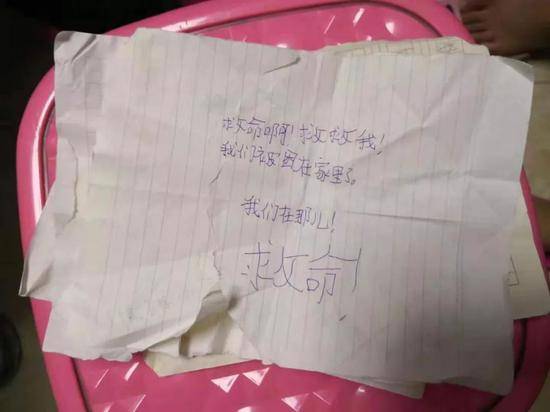 救命啊!救救我!
我们被困在家里了。
我们在那儿!
救命!